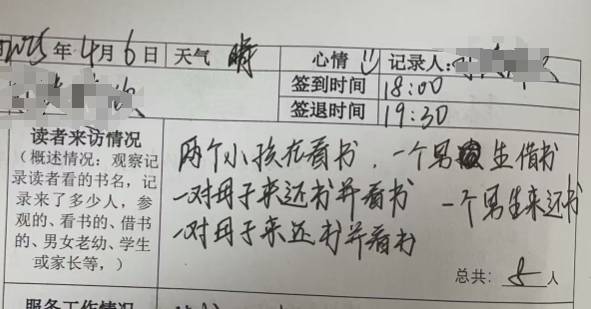 2025年4月6日 天气 晴 心情 记录人:
签到时间 18:00
签退时间 19:30
读者来访情况
(概述情况:观察记
录读者看的书名,记
录来了多少人,参
观的、看书的、借书
的、男女老幼、学生
或家长等,)
两个小孩在看书,一个男生借书
一对母子来还书并看书 一个男生来还书
一对母子来还书并看书
总共: 8 人
服务工作情况